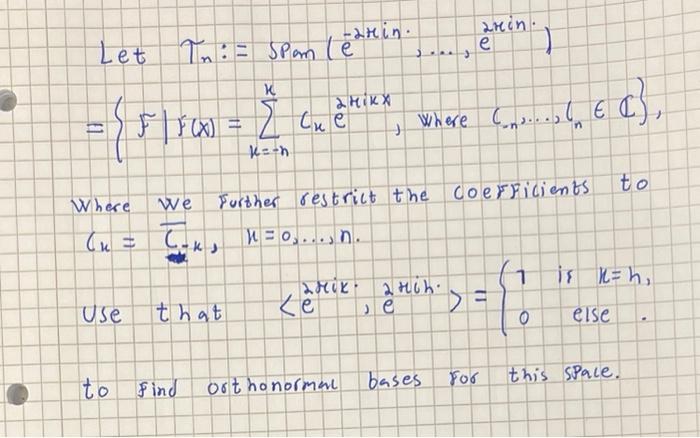 Let Tₙ := span (e^{-2πin·}, ..., e^{2πin·})
= { F | F(x) = ∑_{k=-n}^{k} c_k e^{2πikx}, where c_{-n}, ..., c_n ∈ ℂ },
Where we further restrict the coefficients to
c_k = \overline{c_{-k}}, k = 0, ..., n.
Use that <e^{2πik·}, e^{2πih·}> = { 1 if k = h, 0 else .
to find orthonormal bases for this space.